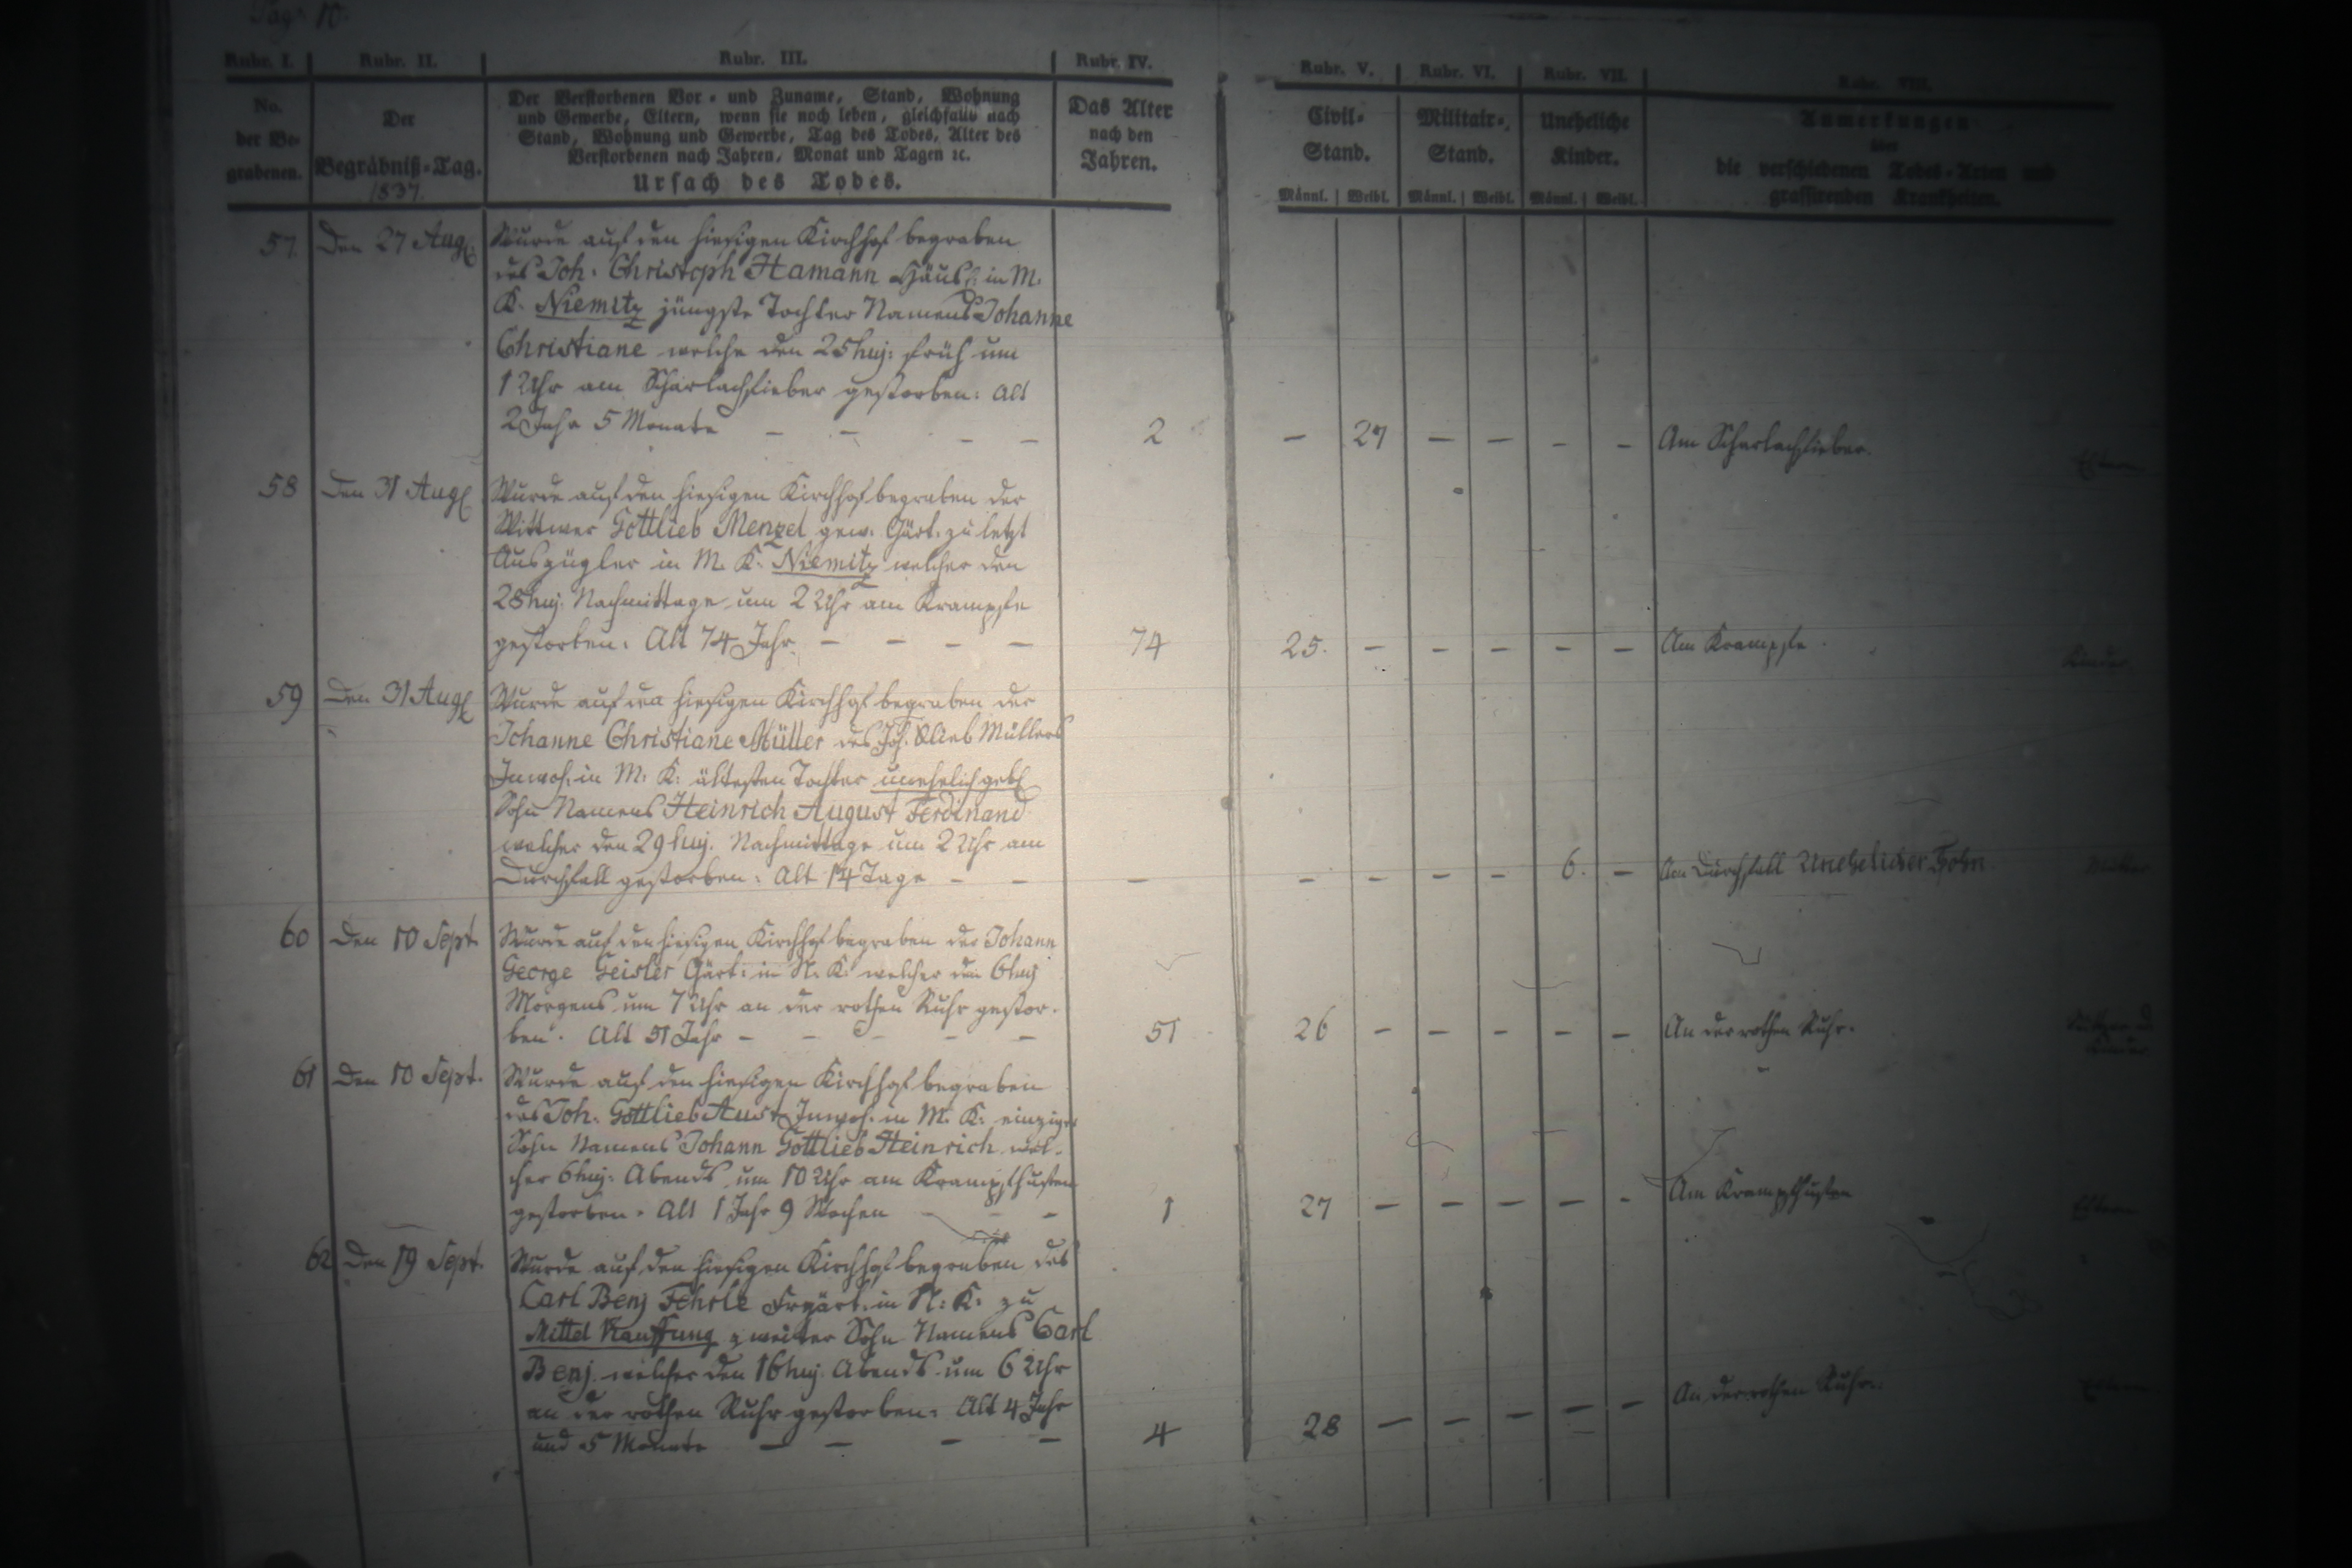 Pag. 10.
Rubr. I. Rubr. II. Rubr. III. Rubr. IV. Rubr. V. Rubr. VI. Rubr. VII. Rubr. VIII.
No. der Be- grabenen.
Der Begräbniß-Tag. 1837.
Der Verstorbenen Vor- und Zuname, Stand, Wohnung
und Gewerbe, Eltern, wenn sie noch leben, gleichfalls nach
Stand, Wohnung und Gewerbe, Tag des Todes, Alter des
Verstorbenen nach Jahren, Monat und Tagen ꝛc.
Ursach des Todes.
Das Alter nach den Jahren.
Civil- Stand. Männl. Weibl.
Militair- Stand. Männl. Weibl.
Uneheliche Kinder. Männl. Weibl.
Anmerkungen
über
die verschiedenen Todes-Arten und
grassirenden Krankheiten.
57. Den 27 Aug. Wurde auf den hiesigen Kirchhof begraben
des Joh. Christoph Hamann Häusl. in M.
K. Niemitz jüngste Tochter Namens Johanne
Christiane welche den 25 huj: früh um
1 Uhr am Scharlachfieber gestorben: Alt
2 Jahr 5 Monate – – – – 2 – 27 – – – – Am Scharlachfieber. Eltern
58 Den 31 Aug. Wurde auf den hiesigen Kirchhof begraben der
Wittwer Gottlieb Menzel gew. Gärt. zuletzt
Auszügler in M. K. Niemitz welcher den
28 huj. Nachmittage um 2 Uhr am Krampfe
gestorben: Alt 74 Jahr. – – – – 74 25. – – – – – Am Krampfe. Kinder
59 Den 31 Aug. Wurde auf den hiesigen Kirchhof begraben der
Johanne Christiane Müller des Joh. Glieb Müllers
Inwoh. in M. K: ältesten Tochter unehelich geb.
Sohn Namens Heinrich August Ferdinand
welcher den 29 huj. Nachmittage um 2 Uhr am
Durchfall gestorben: Alt 14 Tage – – – – – – – 6. – Am Durchfall Unehelicher Sohn Mutter
60 Den 10 Sept. Wurde auf den hiesigen Kirchhof begraben der Johann
George Geisler Gärt: in N. K: welcher den 6 huj
Morgens um 7 Uhr an der rothen Ruhr gestor-
ben: Alt 51 Jahr – – – – – 51 26 – – – – – An der rothen Ruhr.
61 Den 10 Sept. Wurde auf den hiesigen Kirchhof begraben
des Joh. Gottlieb Aust Inwoh. in M. K: einziger
Sohn Namens Johann Gottlieb Heinrich wel-
cher 6 huj: Abends um 10 Uhr am Krampfhusten
gestorben. Alt 1 Jahr 9 Wochen – – – 1 27 – – – – – Am Krampfhusten Eltern
62 Den 19 Sept. Wurde auf den hiesigen Kirchhof begraben des
Carl Benj Fehrle Frgärt. in N: K: zu
Mittel Kauffung zweiter Sohn Namens Carl
Benj. welcher den 16 huj. Abends um 6 Uhr
an der rothen Ruhr gestorben: Alt 4 Jahr
und 5 Monate – – – – 4 28 – – – – – An der rothen Ruhr. Eltern